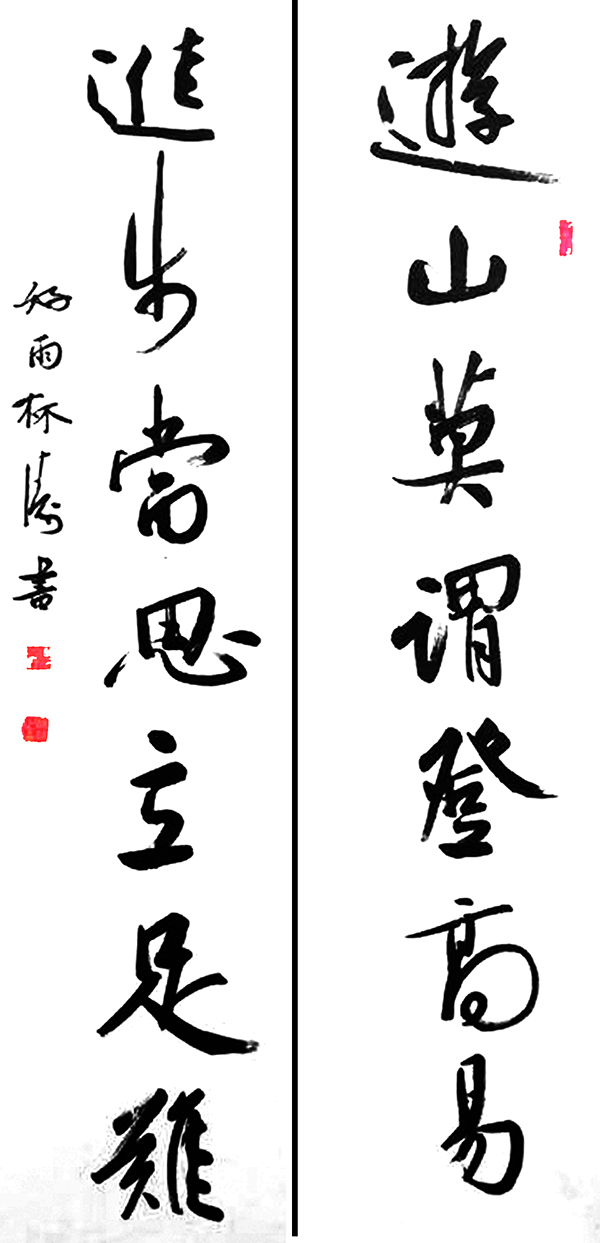 遊山莫謂登高易
進步當思立足難
好雨林濤書